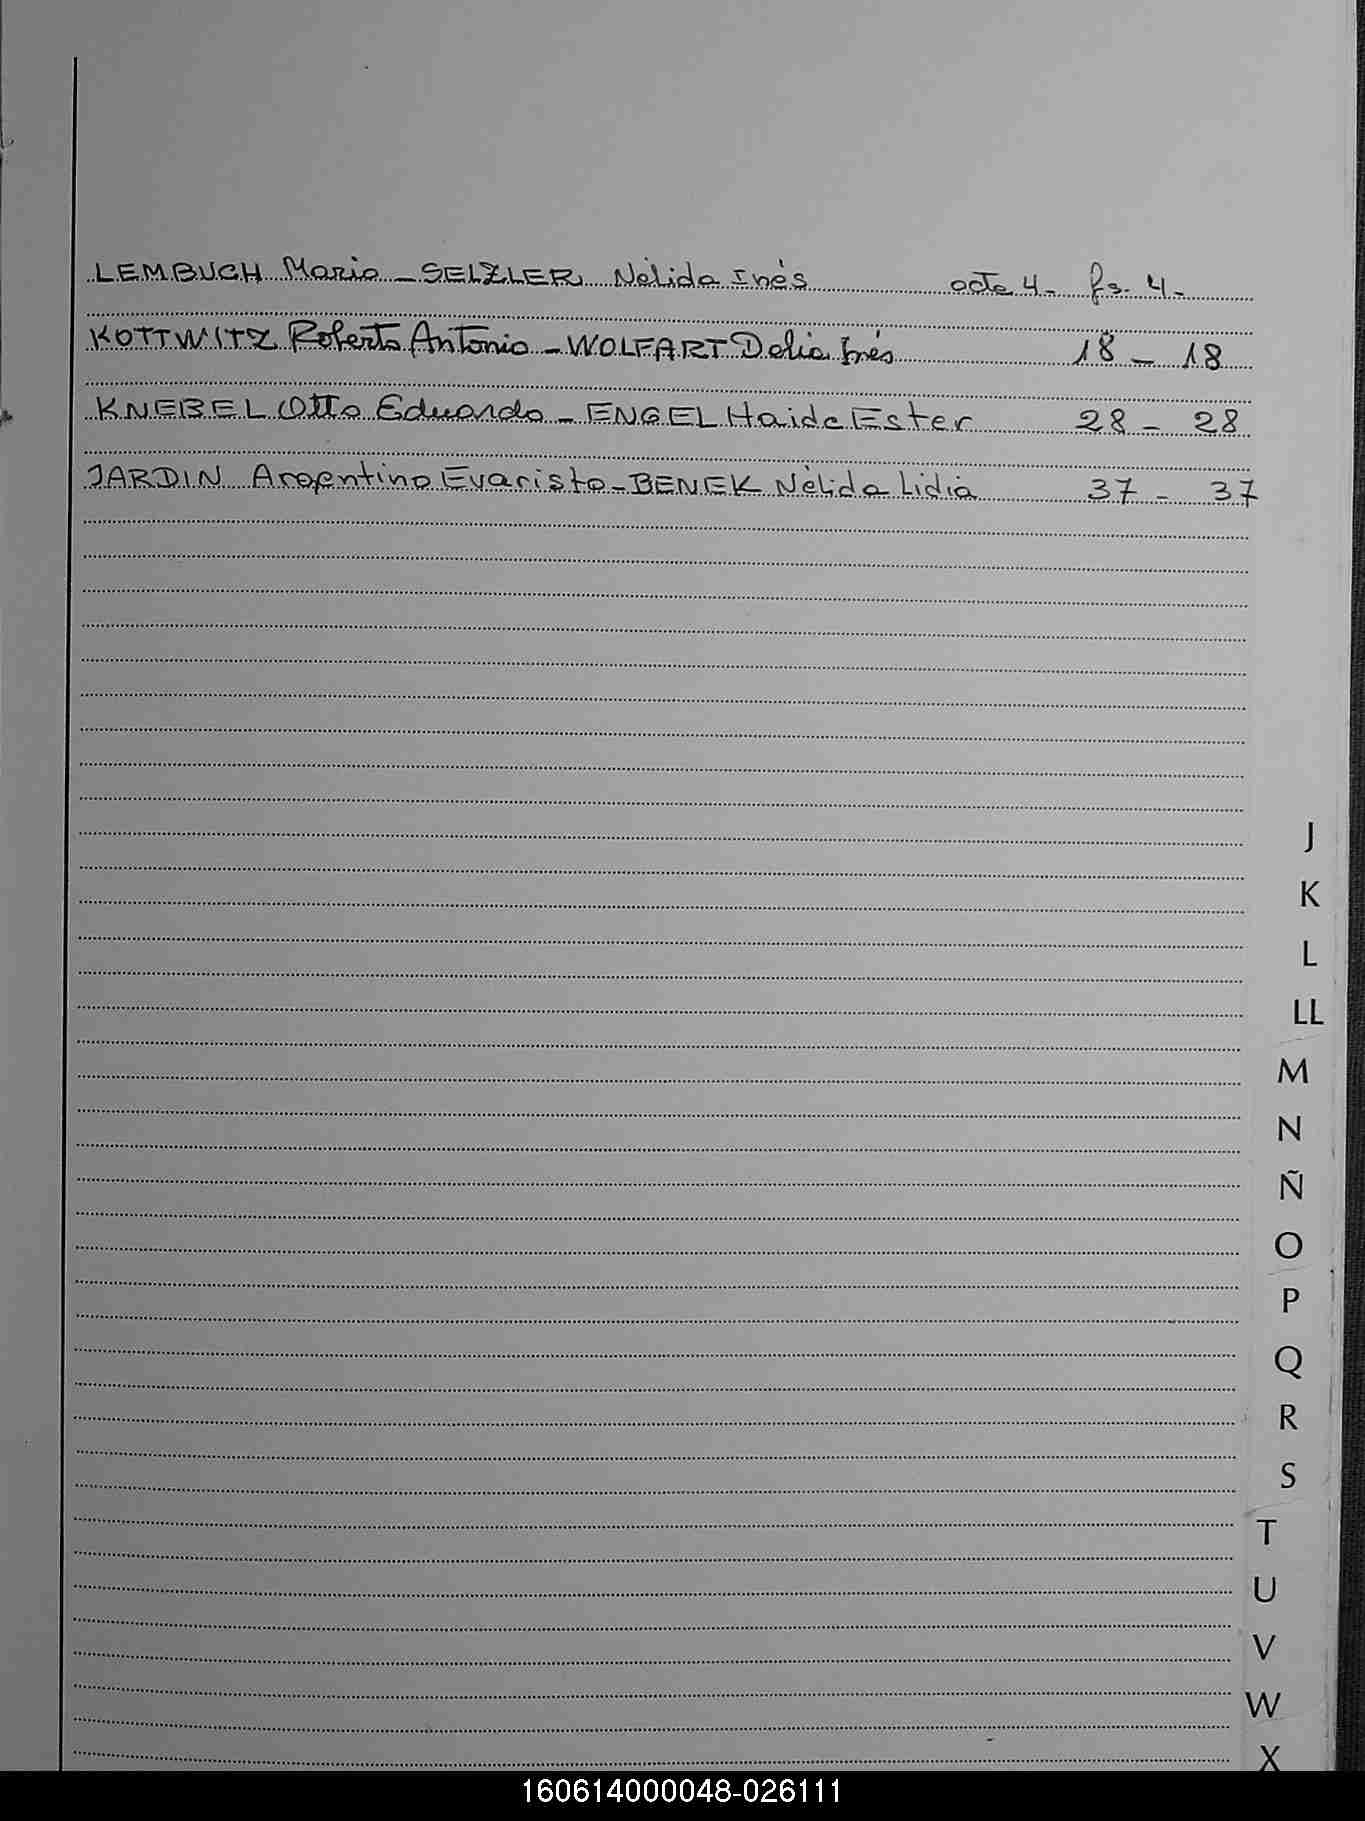 LEMBUCH Mario - SELZLER Nélida Inés acta 4- fs. 4-
KOTTWITZ Roberto Antonio - WOLFART Delia Inés 18 - 18
KNEBEL Otto Eduardo - ENGEL Haide Ester 28 - 28
JARDIN Argentino Evaristo - BENEK Nélida Lidia 37 - 37
J
K
L
LL
M
N
Ñ
O
P
Q
R
S
T
U
V
W
X
160614000048-026111